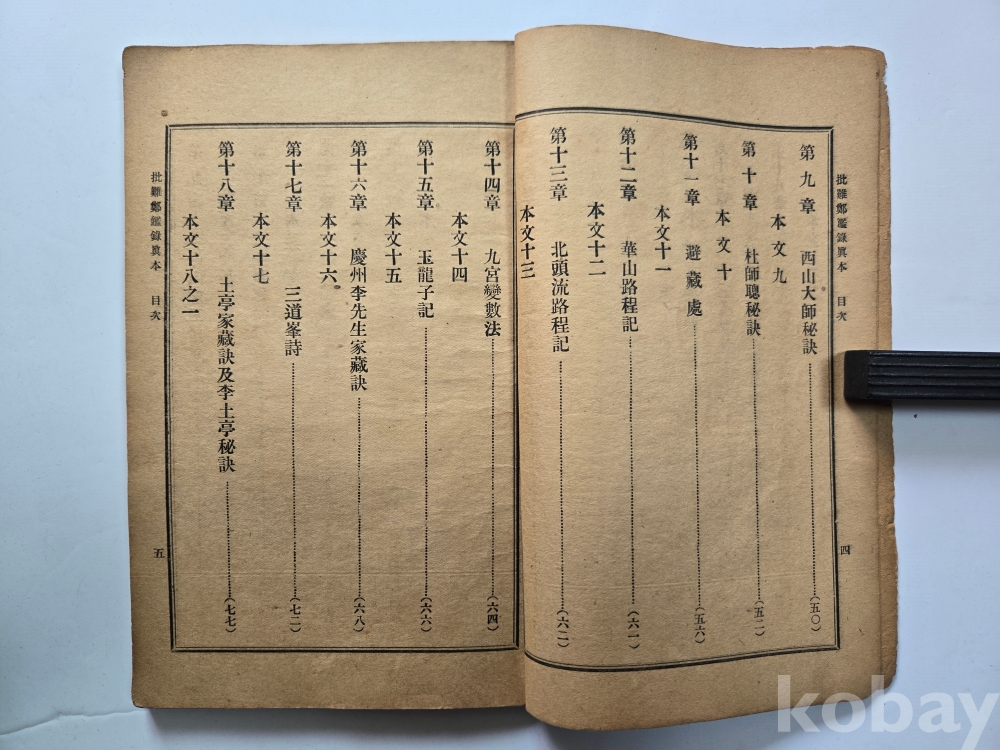 批難鄭鑑錄眞本 目次
四
第九章 西山大師秘訣 (五〇)
本文九
第十章 杜師聰秘訣 (五二)
本文十
第十一章 避藏處 (五六)
本文十一
第十二章 華山路程記 (六一)
本文十二
第十三章 北頭流路程記 (六二)
本文十三
第十四章 九宮變數法 (六四)
本文十四
第十五章 玉龍子記 (六六)
本文十五
第十六章 慶州李先生家藏訣 (六八)
本文十六
第十七章 三道峯詩 (七二)
本文十七
第十八章 土亭家藏訣及李土亭秘訣 (七七)
本文十八之一
批難鄭鑑錄眞本 目次
五
kobay